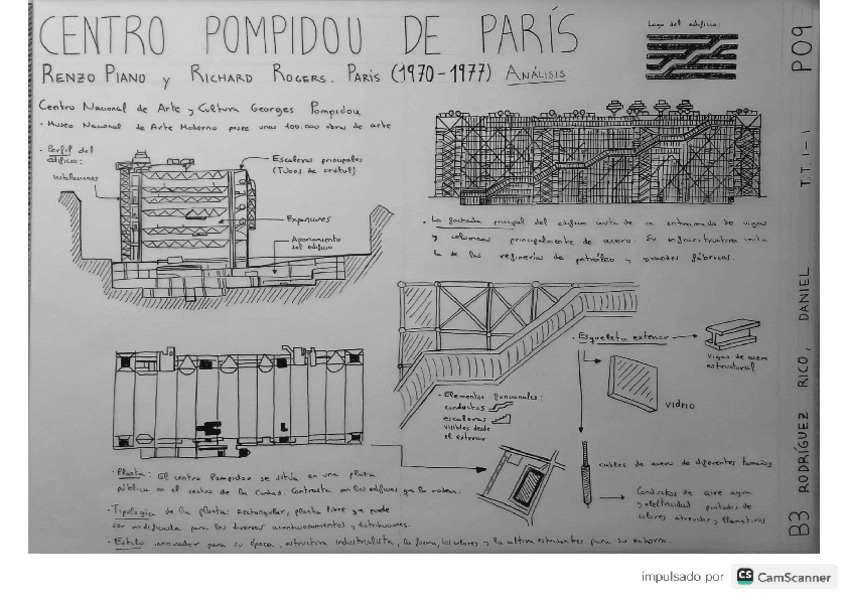 CENTRO POMPIDOU DE PARÍS
Logo del edificio:
RENZO PIANO y RICHARD ROGERS. PARÍS (1970-1977) ANÁLISIS
Centro Nacional de Arte y Cultura Georges Pompidou
· Museo Nacional de Arte Moderno posee unas 100.000 obras de arte
· Perfil del edificio:
Instalaciones
Escaleras principales
(Tubos de cristal)
Exposiciones
Aparcamiento
del edificio
· La fachada principal del edificio consta de un entramado de vigas
y columnas principalmente de acero. Su infraestructura imita
la de las refinerías de petróleo y grandes fábricas.
· Esqueleto exterior
Vigas de acero
estructural
vidrio
· Elementos funcionales:
conductos
escaleras
visibles desde
el exterior
cables de acero de diferentes tamaños
Conductos de aire agua
y electricidad pintados de
colores atrevidos y llamativos
· Planta: El centro Pompidou se sitúa en una plaza
pública en el centro de la ciudad. Contrasta con los edificios que la rodean.
· Tipología de la planta: rectangular, planta libre que puede
ser modificada para los diversos acondicionamientos y distribuciones.
· Estilo innovador para su época, estructura industrialista, la forma, los colores y la altura para su entorno.
B3 RODRÍGUEZ RICO, DANIEL TT 1-1 P09
impulsado por CS CamScanner